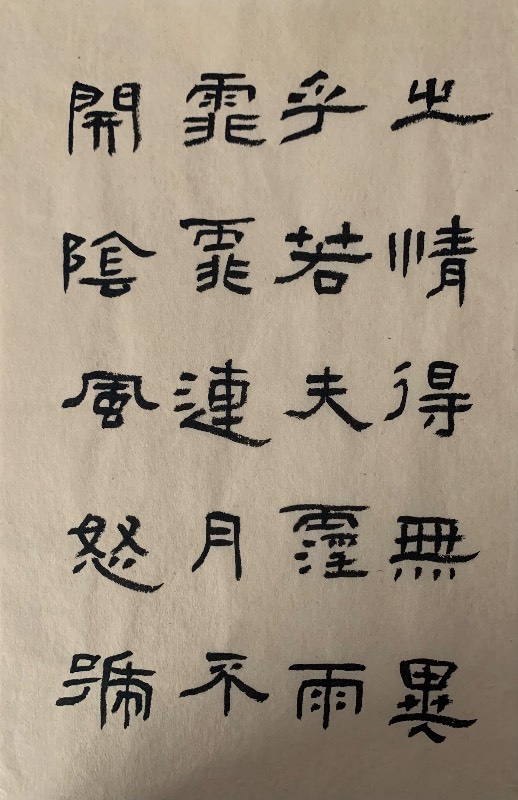 之情得無異
乎若夫霪雨
霏霏連月不
開陰風怒號